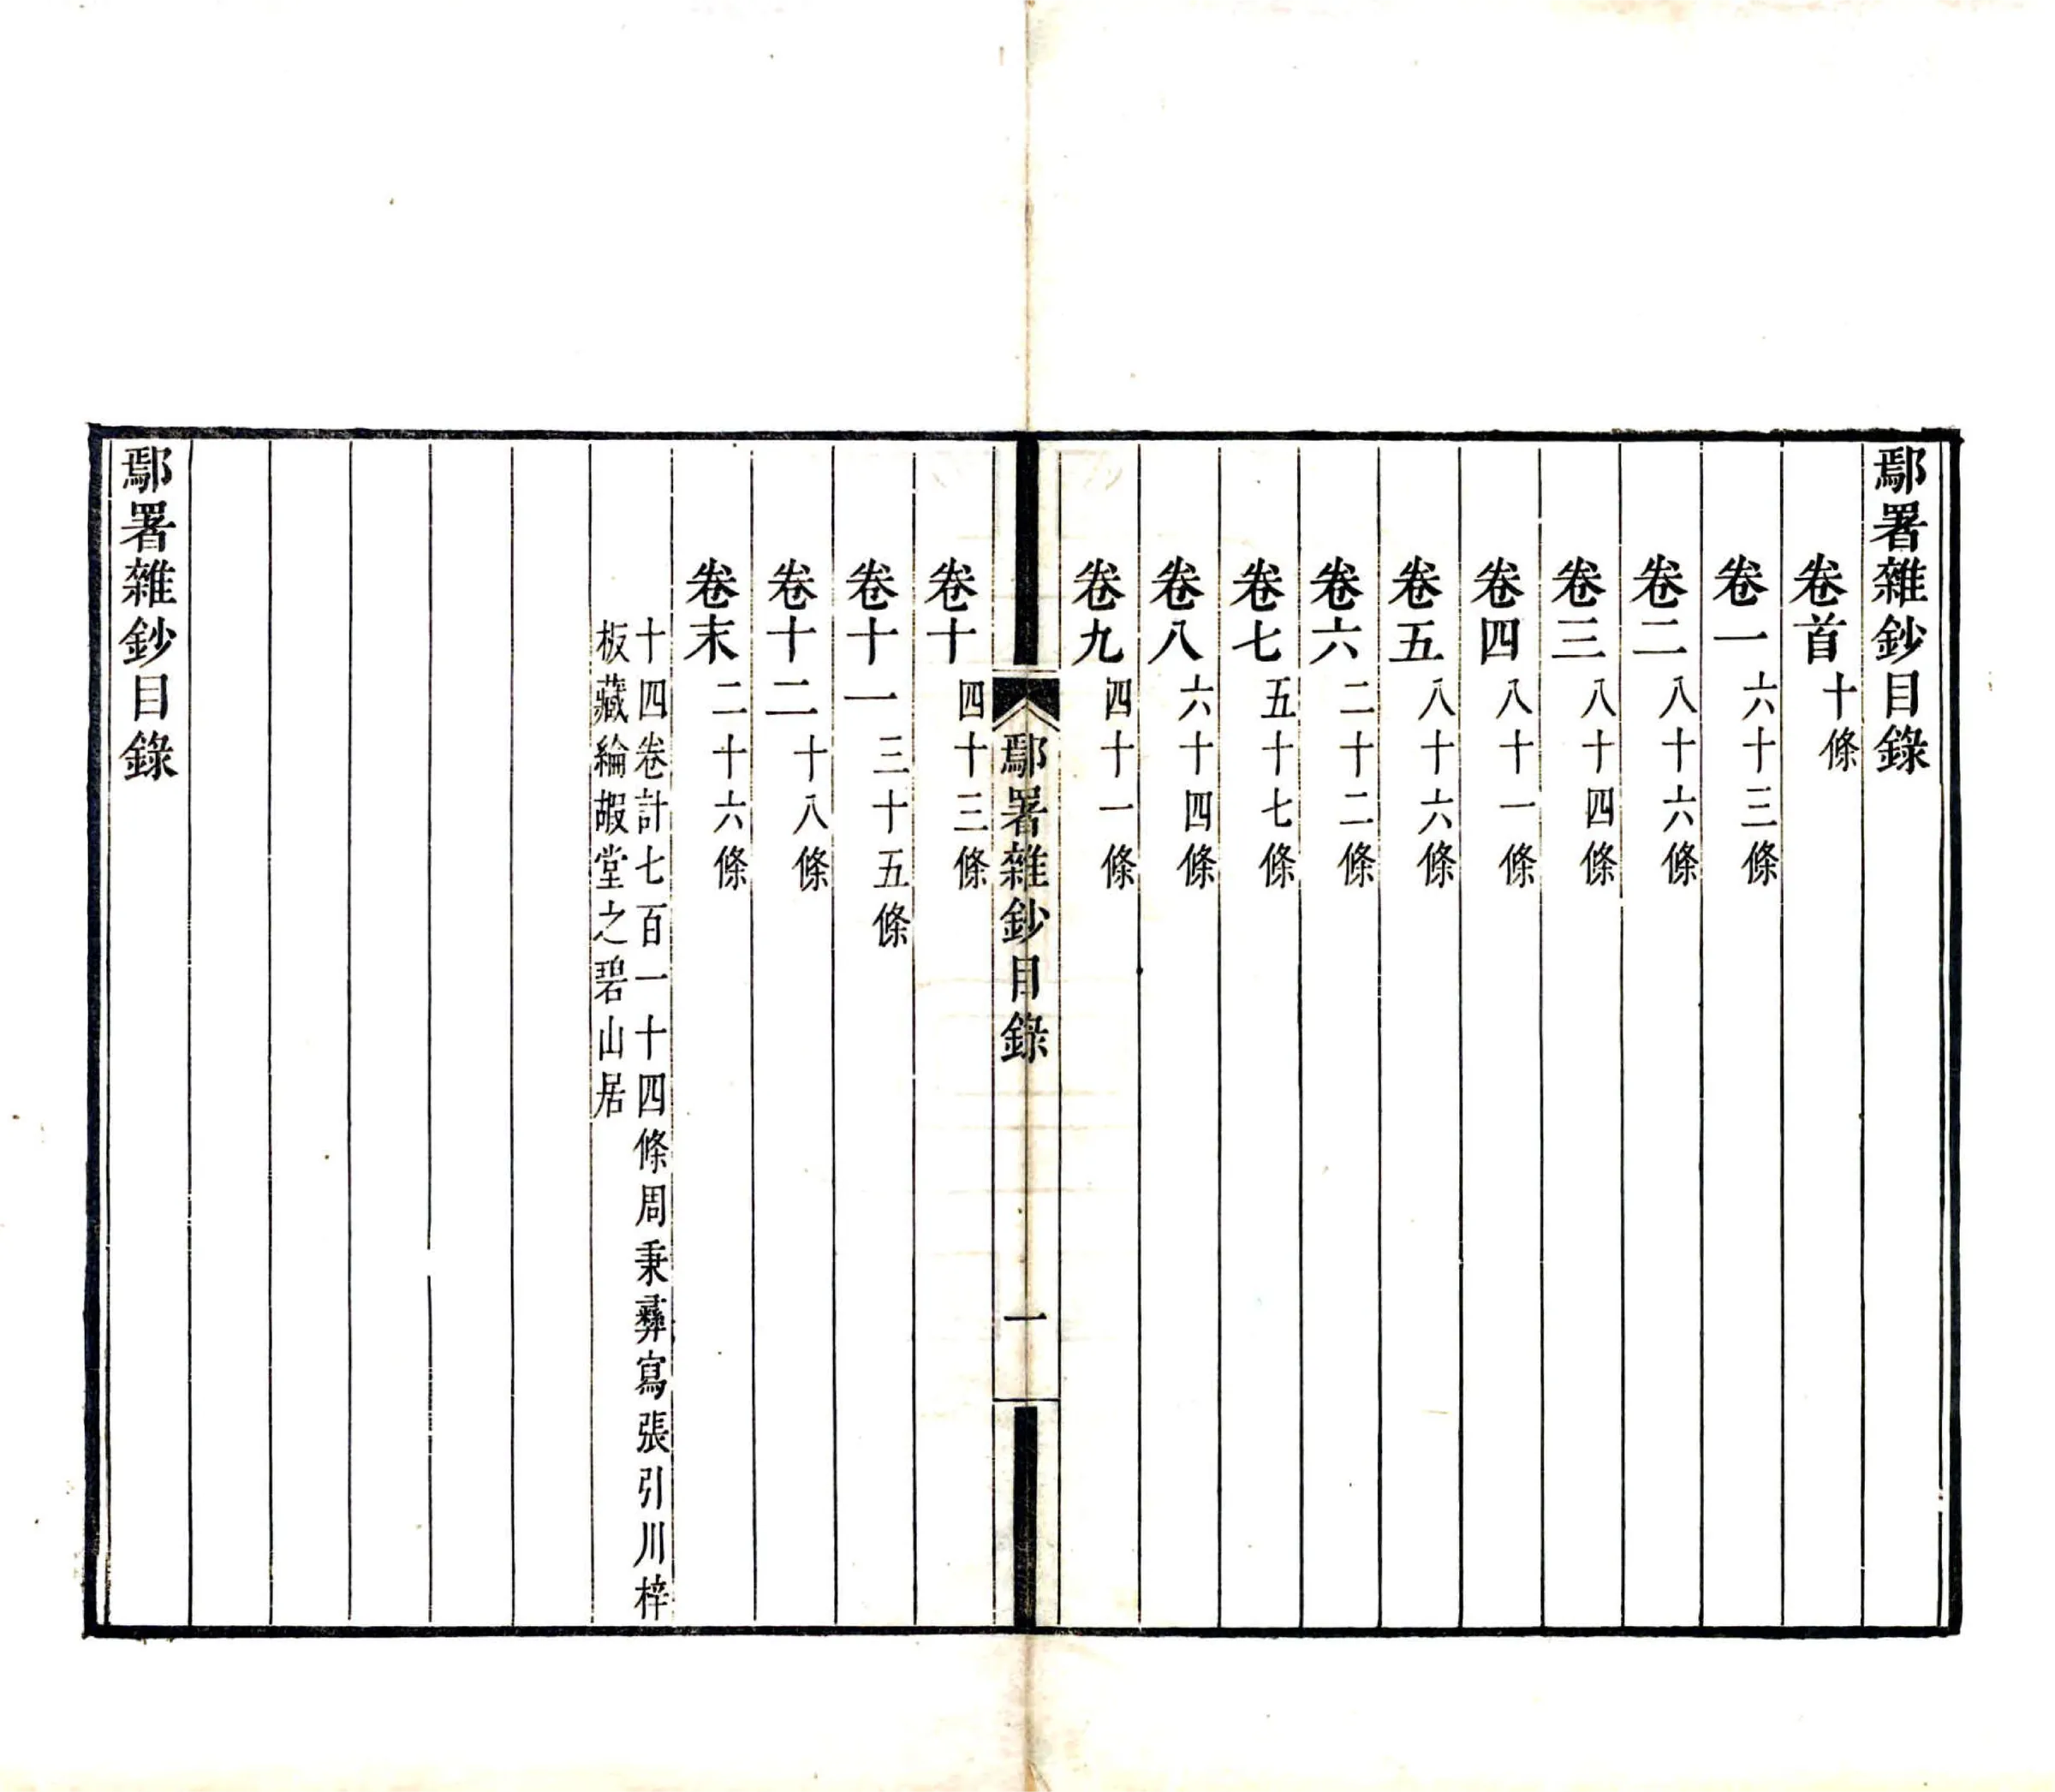 鄢署雜鈔目錄
卷首十條
卷一六十三條
卷二八十六條
卷三八十四條
卷四八十一條
卷五八十六條
卷六二十二條
卷七五十七條
卷八六十四條
卷九四十一條
鄢署雜鈔目錄 一
卷十四十三條
卷十一三十五條
卷十二十八條
卷末二十六條
十四卷計七百一十四條周秉彝寫張引川梓
板藏綸嘏堂之碧山居
鄢署雜鈔目錄